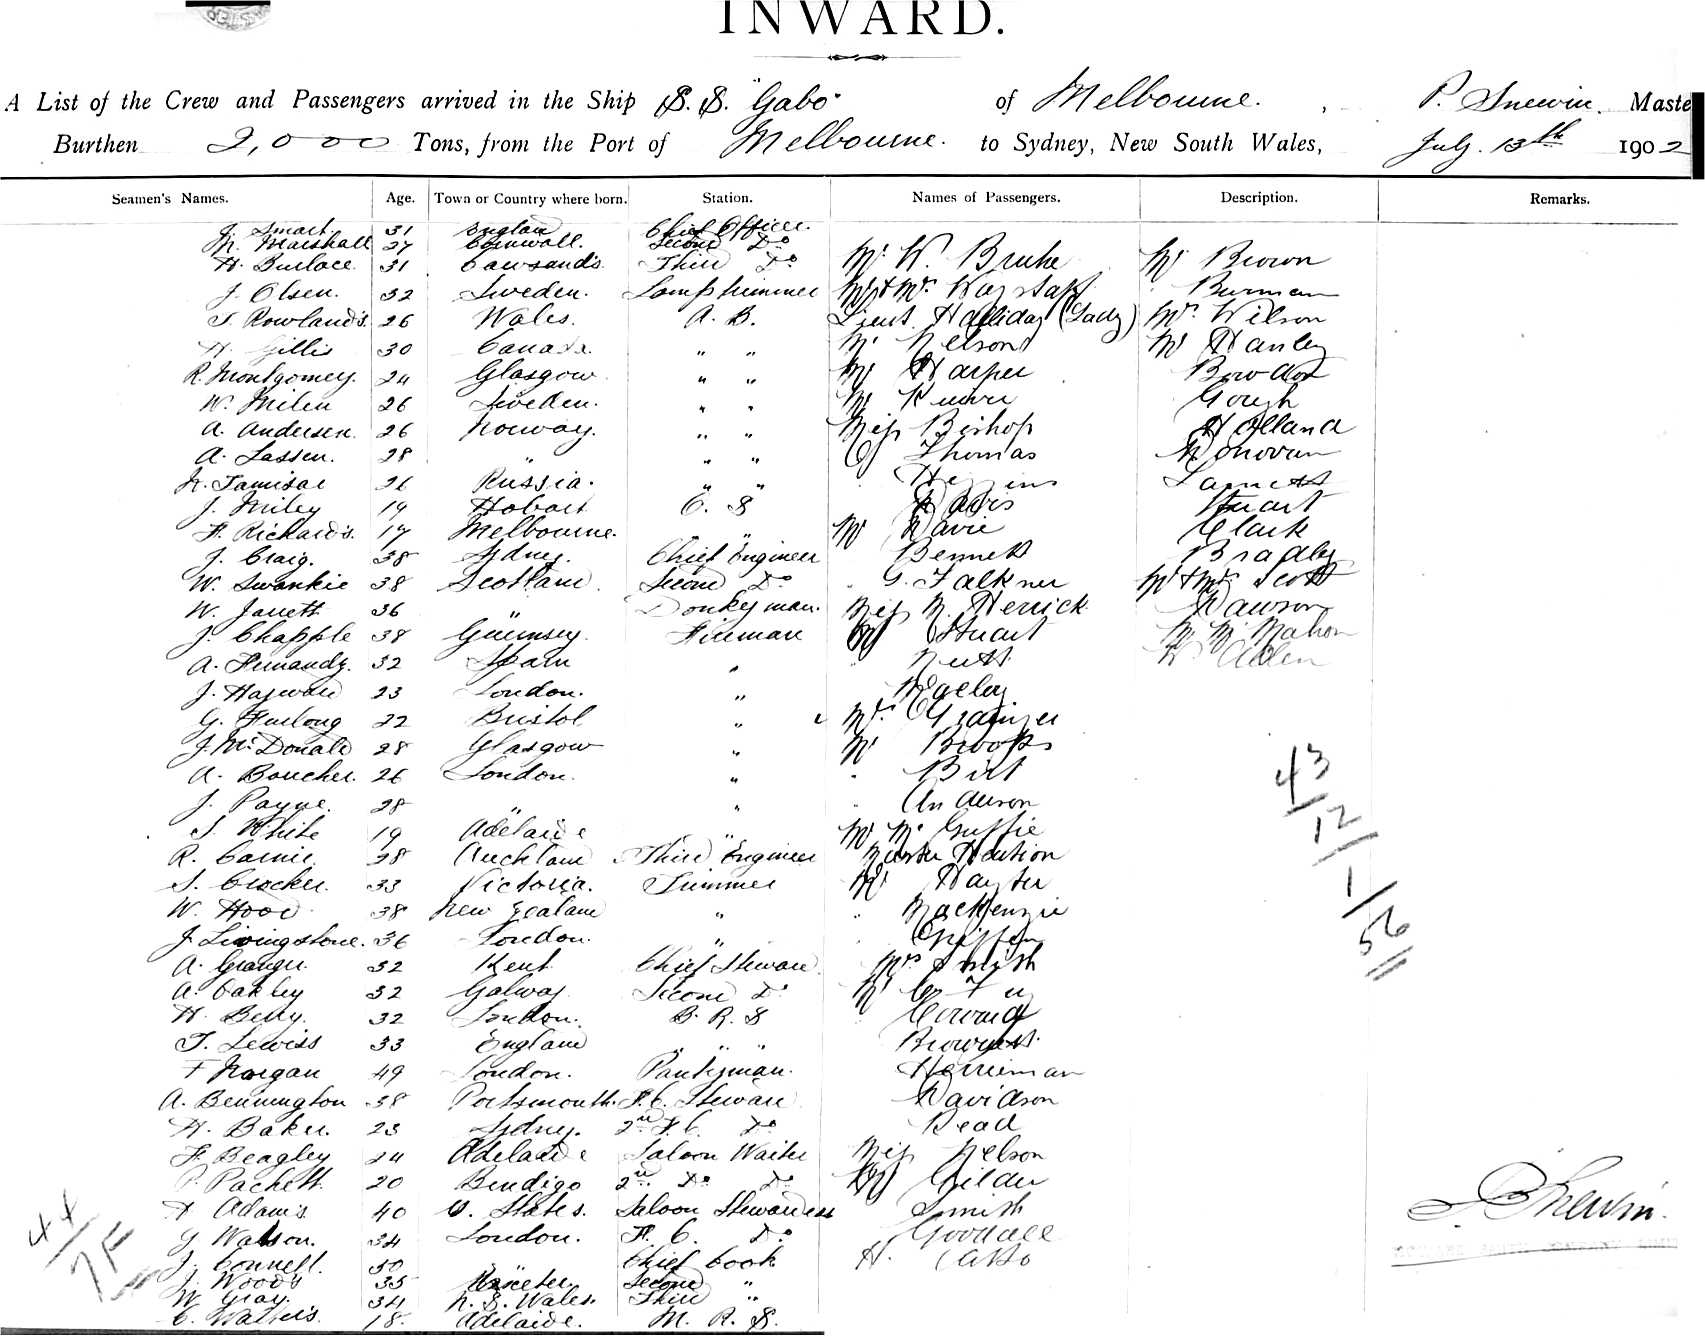 INWARD.
A List of the Crew and Passengers arrived in the Ship S. S. "Gabo" of Melbourne. , P. Snewin. Maste
Burthen 2,000 Tons, from the Port of Melbourne. to Sydney, New South Wales, July. 13th 1902
Seamen's Names. Age. Town or Country where born. Station. Names of Passengers. Description. Remarks.
J. Smart. 31 England Chief Officer.
M. Marshall 27 Cornwall. Second Do
H. Burlace. 31 Cawsands. Third Do Mr W. Bruhe Mr Brown
J. Olsen. 32 Sweden. Lamptrimmer Mr & Mrs Wagstaff Burman
T. Rowlands. 26 Wales. A. B. Lieut. Halliday (Lady) Mr. Wilson
H. Gillis 30 Canada. " " Mr Nelson Mr Hanley
R. Montgomey. 24 Glasgow. " " Mr Harper
W. Milen 26 Sweden. " " Mr Gough
A. Andersen. 26 Norway. " " Miss Bishop Holland
A. Lassen. 28 " " " Thomas Donovan
26 Russia. " " Higgins
J. Miley 19 Hobart O. S Davis Stuart
F. Richards. 17 Melbourne. " Mr Davie Clark
J. Craig. 38 Sydney. Chief Engineer Bennett Bradley
W. Swankie 38 Scotland. Second Do G. Falkner Mr & Mrs Scott
W. Jarrett 36 " Donkeyman. Miss M. Herrick Dawson
J. Chapple 38 Guernsey. Fireman Mr Stuart Mr McMahon
A. Fernandz. 32 Spain " Nutt Allen
J. Hayward 23 London. "
G. Furlong 22 Bristol " Mrs. Grainger
J. McDonald 28 Glasgow " Mr Brooks
A. Boucher. 26 London. " Birt
J. Payne. 28 " " Anderson
S. White 19 Adelaide " Mr McGuffie
R. Cairnie. 28 Auckland Third Engineer Master
S. Crocker. 33 Victoria. Trimmer Mr Hayter
W. Hood 38 New Zealand " MacKenzie
J. Livingstone. 36 London. " Griffin
A. Granger. 32 Kent Chief Steward. Mrs Smith
A. Oakley 32 Galway Second Do Mr
H. Berry. 32 London. B. R. S
T. Lewiss 33 England " " "
F Morgan 49 London. Pantryman. Herriman
A. Bennington 38 Portsmouth. F. C. Steward Davidson
H. Baker. 23 Sydney. 2nd F. C. Do Read
F. Beagley 24 Adelaide Saloon Waiter Miss Nelson
P. Pachett 20 Bendigo 2nd Do Do Mr Gilder
A Adams 40 U. States. Saloon Stewardess Smith
G Watson. 34 London. F. C. Do Goodall
J. Connell. 50 " Chief Cook H.
J. Woods 35 Exeter. Second "
W Gray. 34 N. S. Wales. Third "
C. Walters. 18. Adelaide. M. R. S.
43
12
1
56
44
75
P. Snewin.